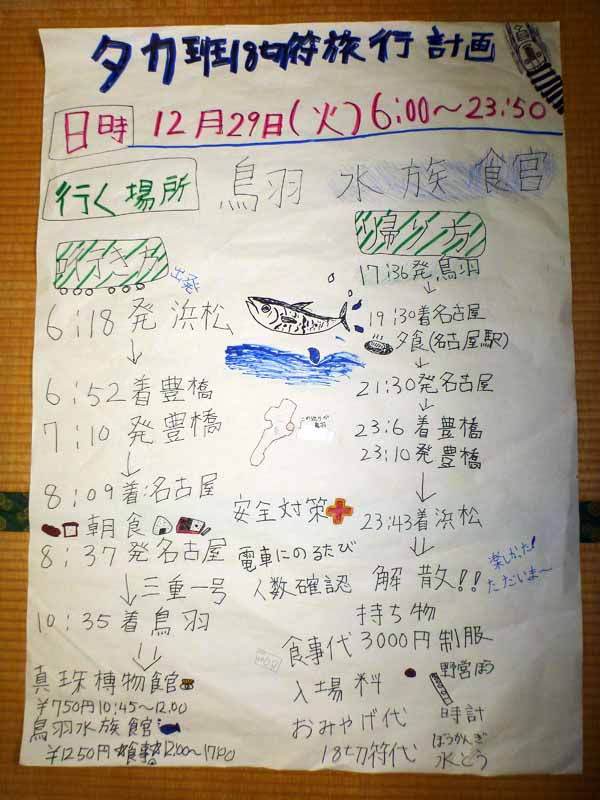 タカ班18切符旅行計画
日時 12月29日(火)6:00〜23:50
行く場所 鳥羽 水族館
行き方
出発
6:18発 浜松
↓
6:52着豊橋
7:10発豊橋
↓
8:09着名古屋
朝食
8:37発名古屋
↓三重一号
10:35着鳥羽
↓↓
真珠博物館
¥750円10:45〜12:00
鳥羽水族館
¥1250円 食事 12:00〜17:00
帰り方
17:36発鳥羽
↓
19:30着名古屋
夕食(名古屋駅)
21:30発名古屋
↓
23:6着豊橋
23:10発豊橋
↓
23:43着浜松
↓
解散!!
楽しかった!
ただいま〜
鳥羽
安全対策
電車にのるたび
人数確認
持ち物
食事代3000円 制服
入場料
野営ぼう
おみやげ代
時計
18切符代
ぼうかんぎ
水とう